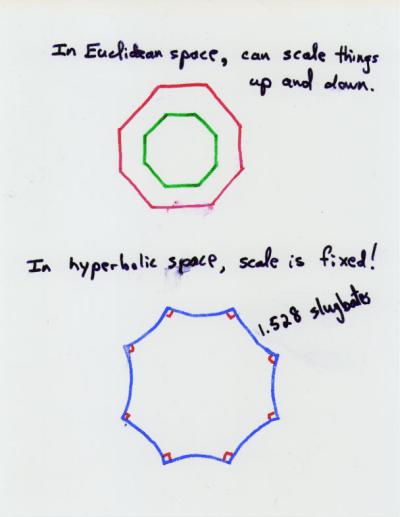 In Euclidean space, can scale things
up and down.
In hyperbolic space, scale is fixed!
1.528 slugbates